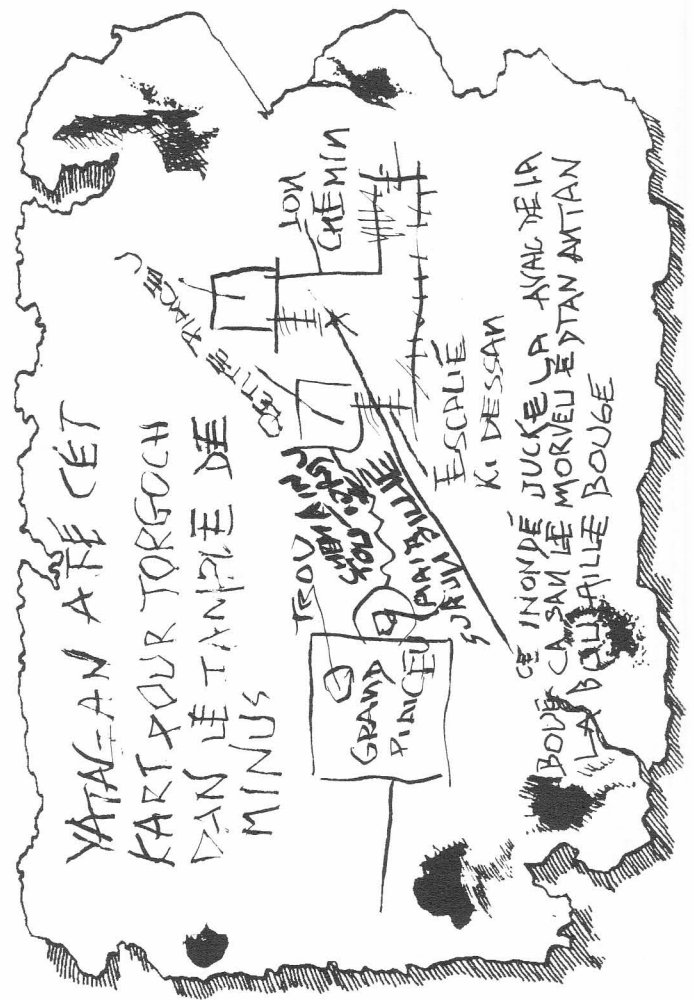 YATAGAN A FÉ CÉT
KART POUR TORGOCH
DAN LE TANPLE DE
MINUS
PETITE PIACEU
ION
CHEMIN
TROU
CHEMAIN
TOU
MAI PLU NE
SURUM
GRAND
PIACEU
ESCALIÉ
KI DESSAN
CÉ INONDÉ JUCKE LA AVAC DE LA
BOUE CA SAN LE MORVEU É DTAN ANTAN
LA BOU AILLE BOUGE